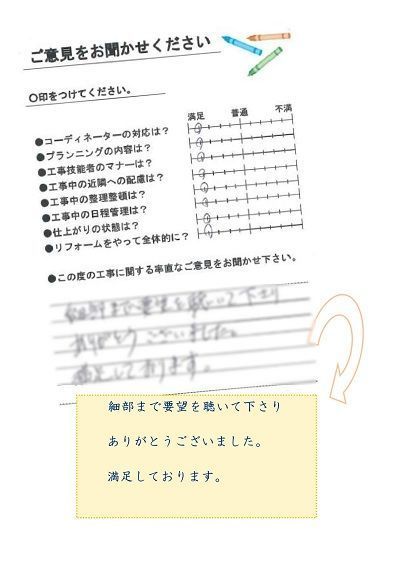 ご意見をお聞かせください
〇印をつけてください。
満足 普通 不満
●コーディネーターの対応は？
●プランニングの内容は？
●工事技能者のマナーは？
●工事中の近隣への配慮は？
●工事中の整理整頓は？
●工事中の日程管理は？
●仕上がりの状態は？
●リフォームをやって全体的に？
●この度の工事に関する率直なご意見をお聞かせ下さい。
細部まで要望を聴いて下さり
ありがとうございました。
満足しております。
細部まで要望を聴いて下さり
ありがとうございました。
満足しております。